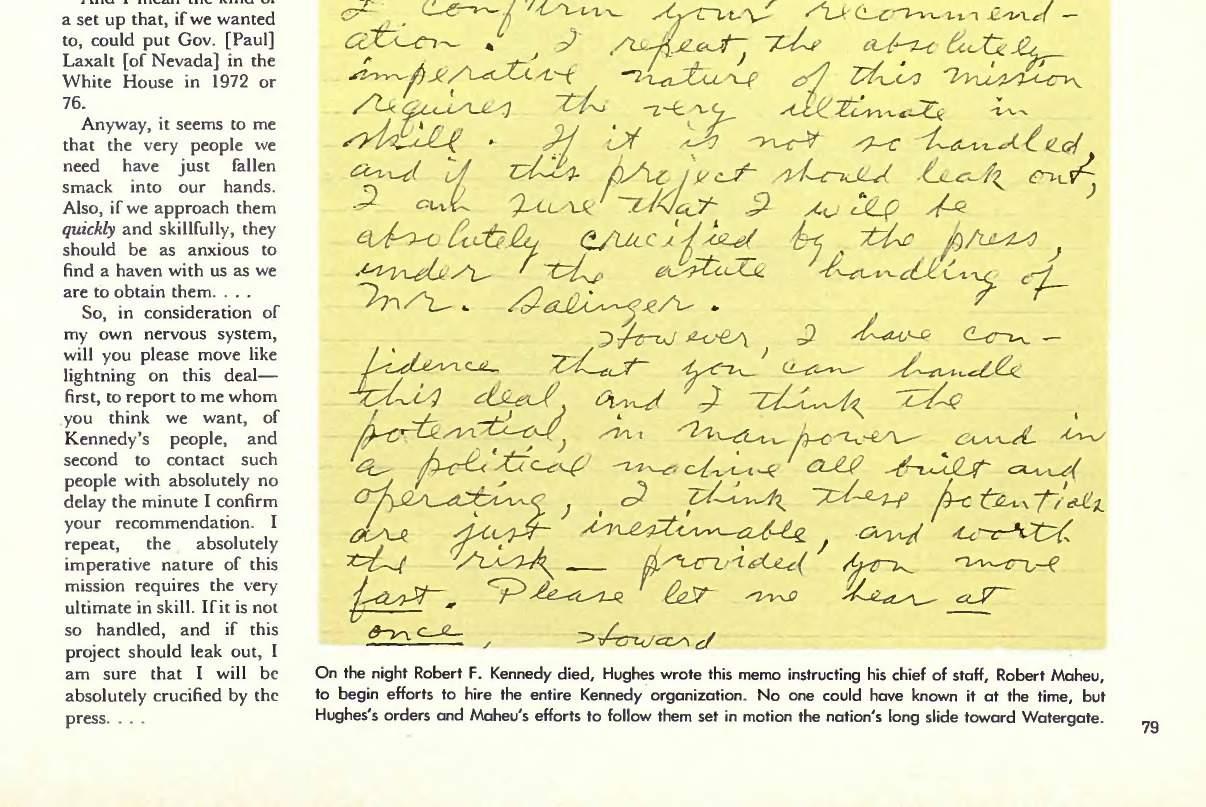 And I mean the kind of
a set up that, if we wanted
to, could put Gov. [Paul]
Laxalt [of Nevada] in the
White House in 1972 or
76.
Anyway, it seems to me
that the very people we
need have just fallen
smack into our hands.
Also, if we approach them
quickly and skillfully, they
should be as anxious to
find a haven with us as we
are to obtain them. . . .
So, in consideration of
my own nervous system,
will you please move like
lightning on this deal—
first, to report to me whom
you think we want, of
Kennedy's people, and
second to contact such
people with absolutely no
delay the minute I confirm
your recommendation. I
repeat, the absolutely
imperative nature of this
mission requires the very
ultimate in skill. If it is not
so handled, and if this
project should leak out, I
am sure that I will be
absolutely crucified by the
press. . . .
I confirm your recommend-
ation. I repeat, the absolutely
imperative nature of this mission
requires the very ultimate in
skill. If it is not so handled,
and if this project should leak out,
I am sure that I will be
absolutely crucified by the press,
under the astute handling of
Mr. Salinger.
However, I have con-
fidence that you can handle
this deal, and I think the
potential, in manpower and in
a political machine all built and
operating, I think these potentials
are just inestimable, and worth
the risk — provided you move
fast. Please let me hear at
once, Howard
On the night Robert F. Kennedy died, Hughes wrote this memo instructing his chief of staff, Robert Maheu,
to begin efforts to hire the entire Kennedy organization. No one could have known it at the time, but
Hughes's orders and Maheu's efforts to follow them set in motion the nation's long slide toward Watergate.
79